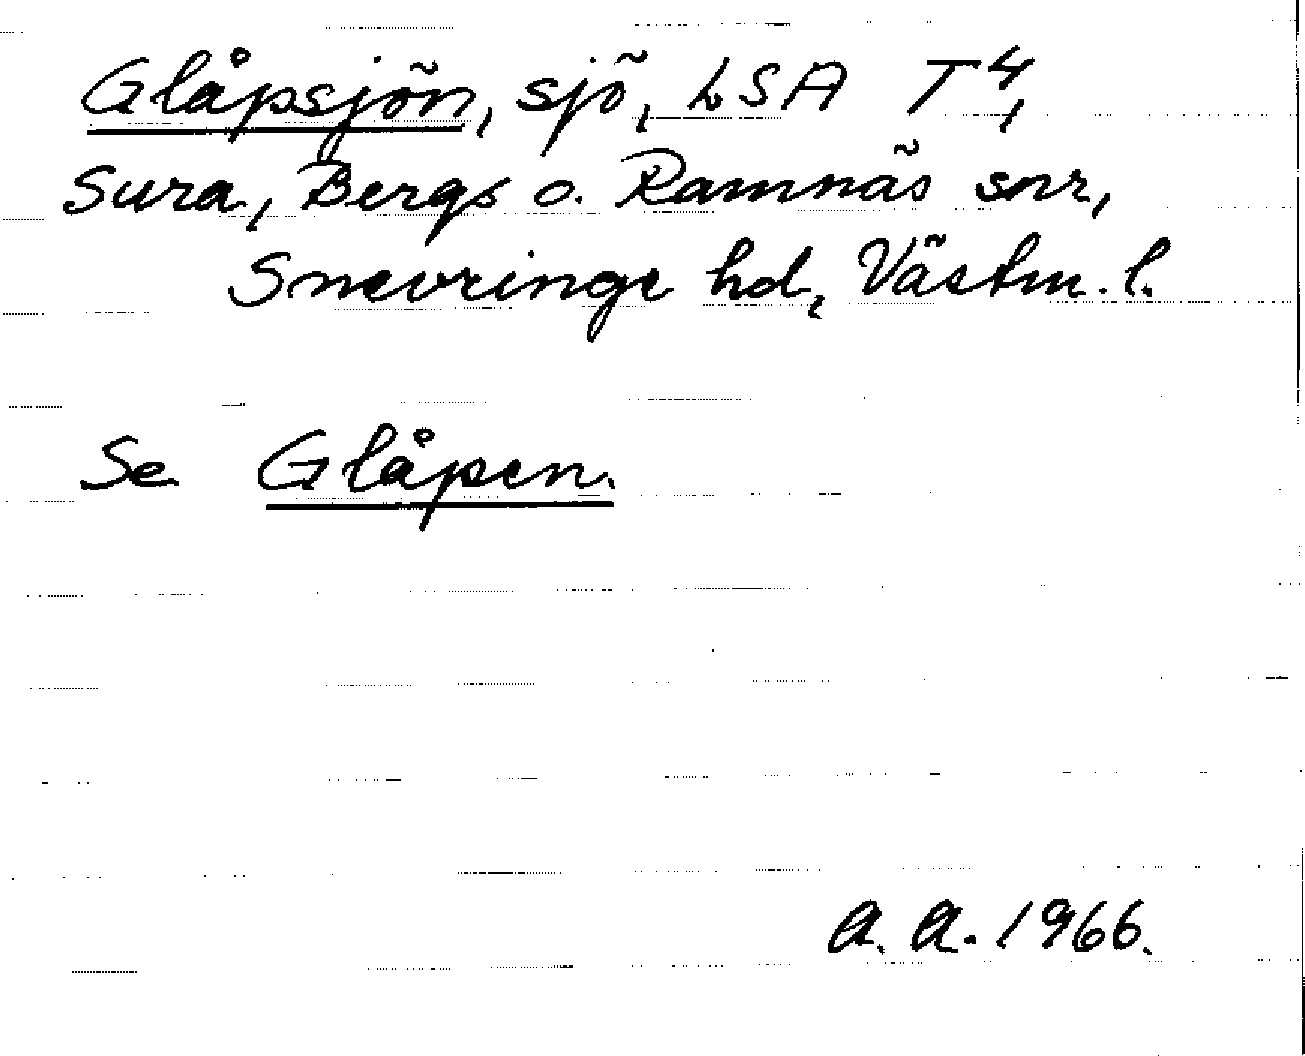 Glåpsjön, sjö, LSA T4,
Sura, Bergs o. Ramnäs snr,
Snevringe hd, Västm. l.
Se Glåpen.
A. A. 1966.